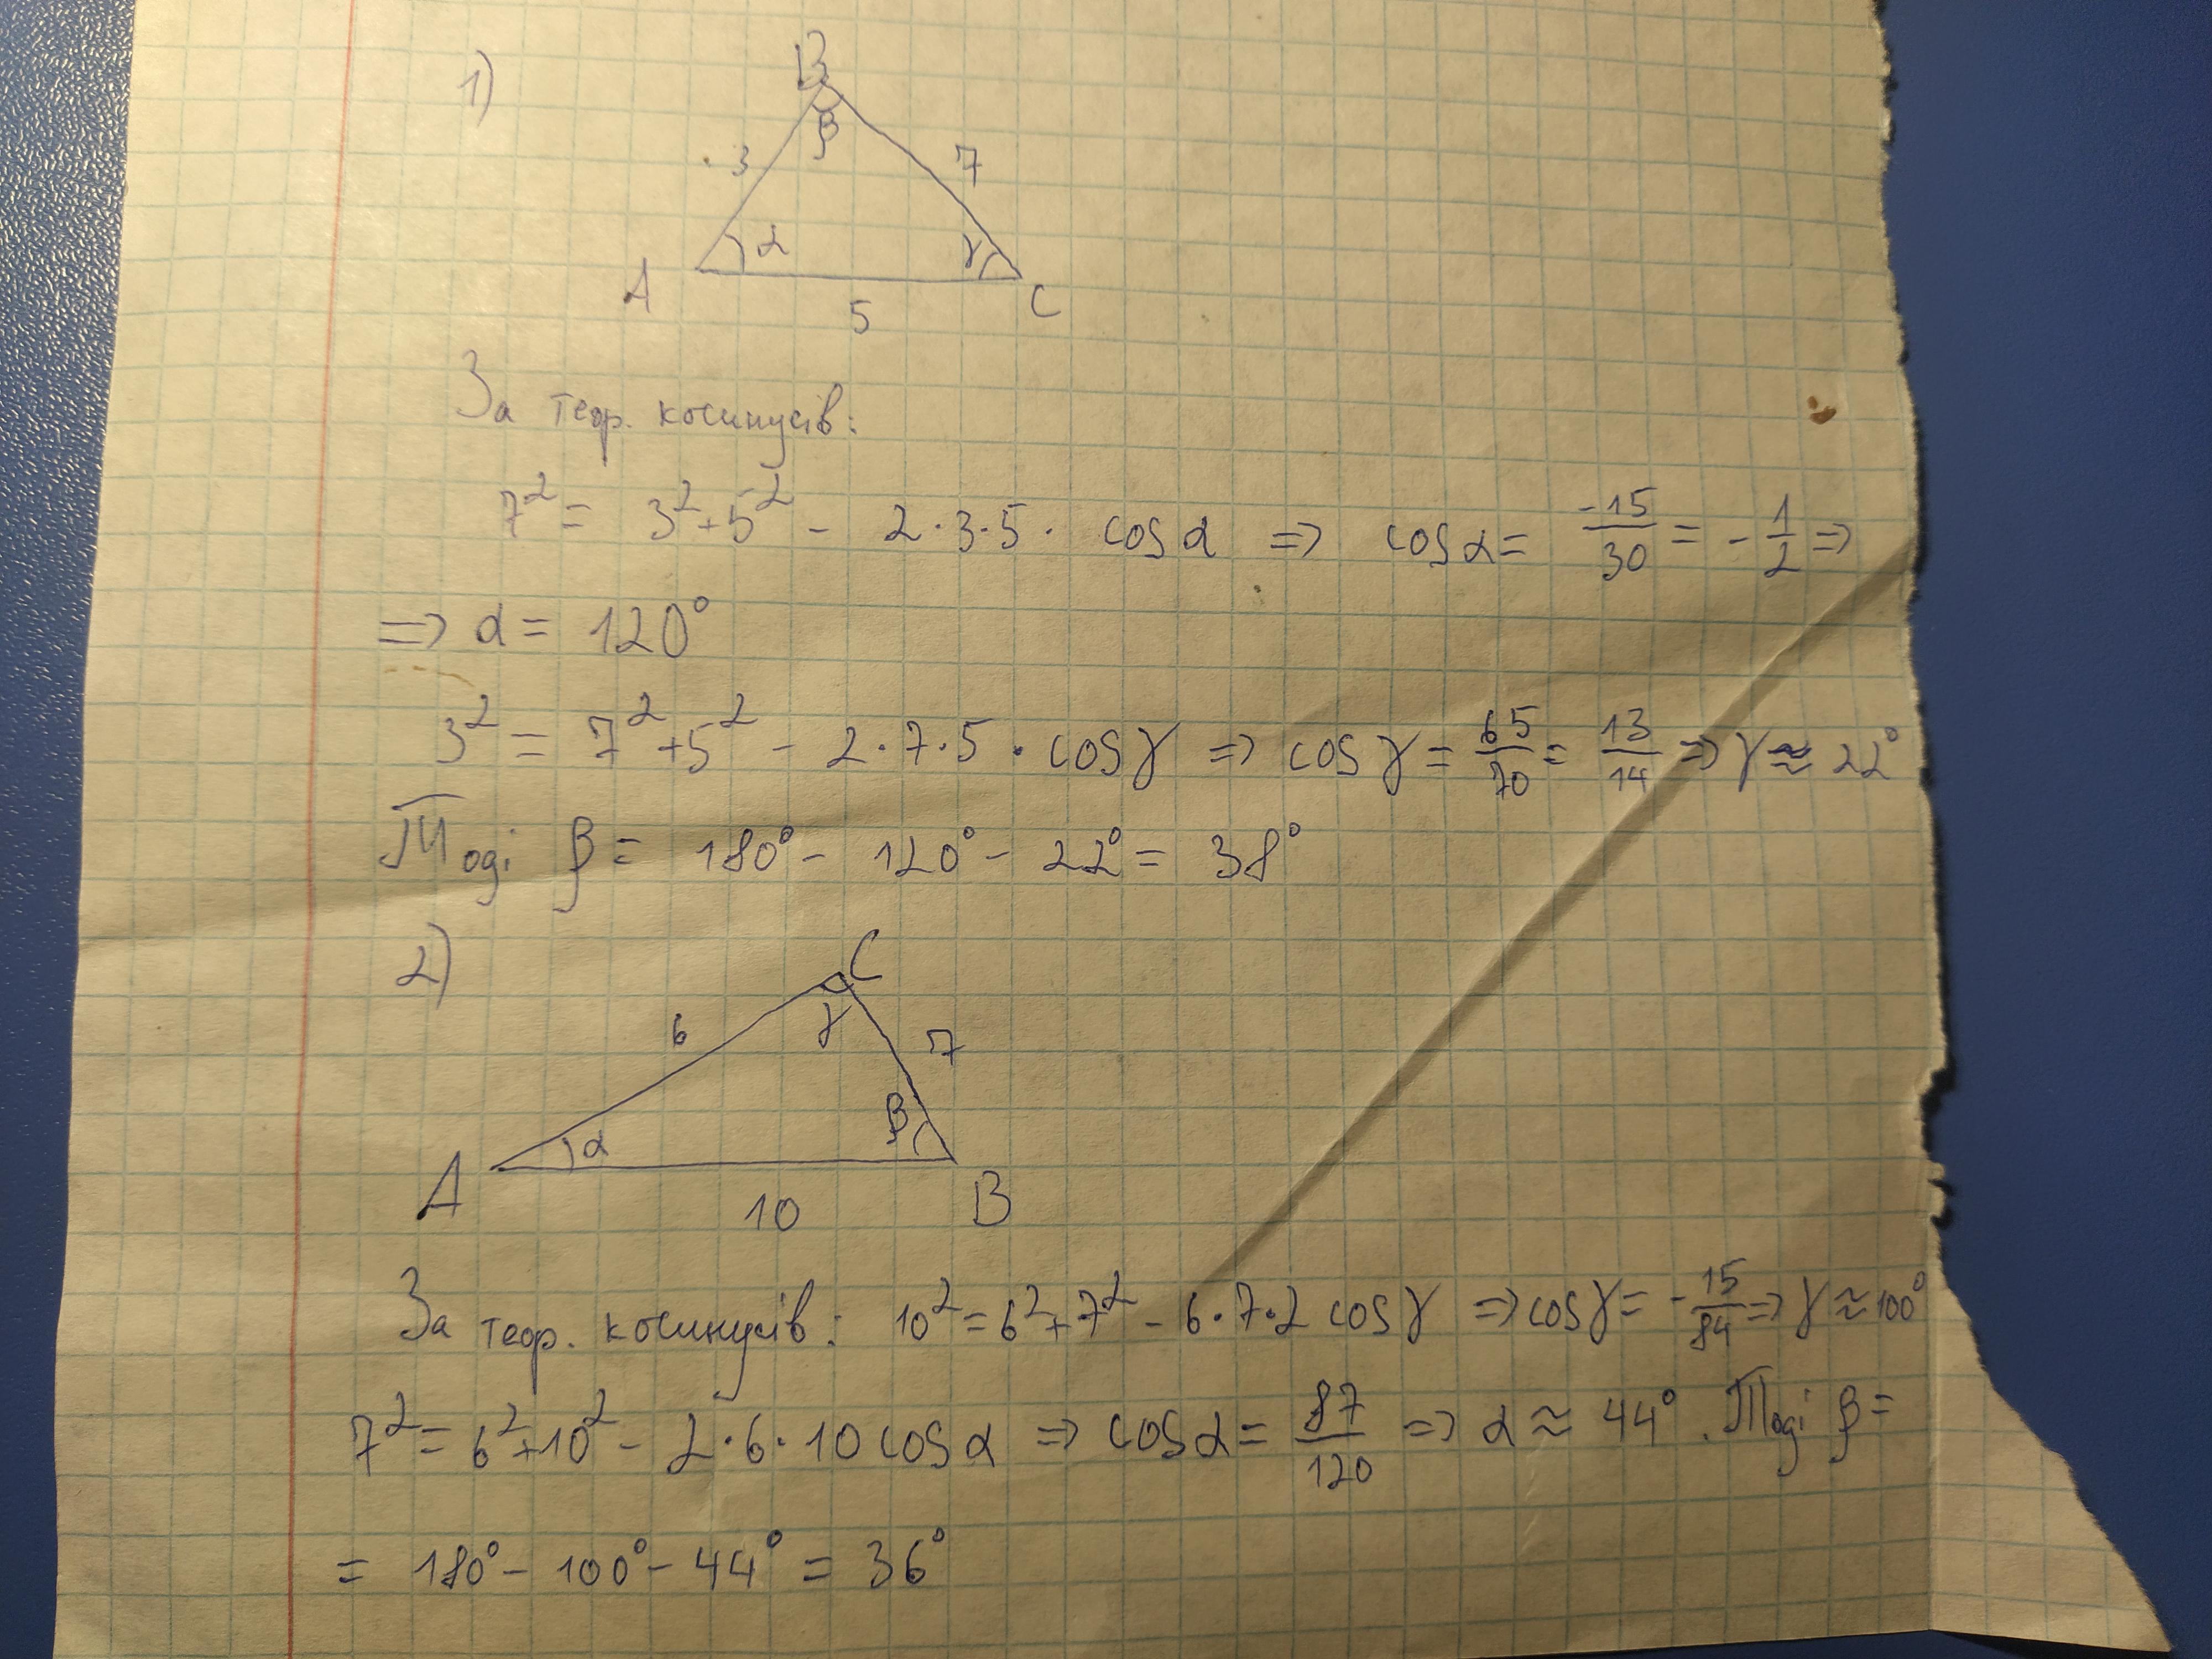 1)
B
β
3
7
α
γ
A
C
5
За теор. косинусів:
7² = 3²+5² - 2·3·5· cos α => cos α = -15/30 = - 1/2 =>
=> α = 120°
3² = 7²+5² - 2·7·5·cos γ => cos γ = 65/70 = 13/14 => γ ≈ 22°
Тоді β = 180° - 120° - 22° = 38°
2)
C
6
γ
7
β
α
A
10
B
За теор. косинусів: 10² = 6²+7² - 6·7·2 cos γ => cos γ = - 15/84 => γ ≈ 100°
7² = 6²+10² - 2·6·10 cos α => cos α = 87/120 => α ≈ 44°. Тоді β =
= 180° - 100° - 44° = 36°